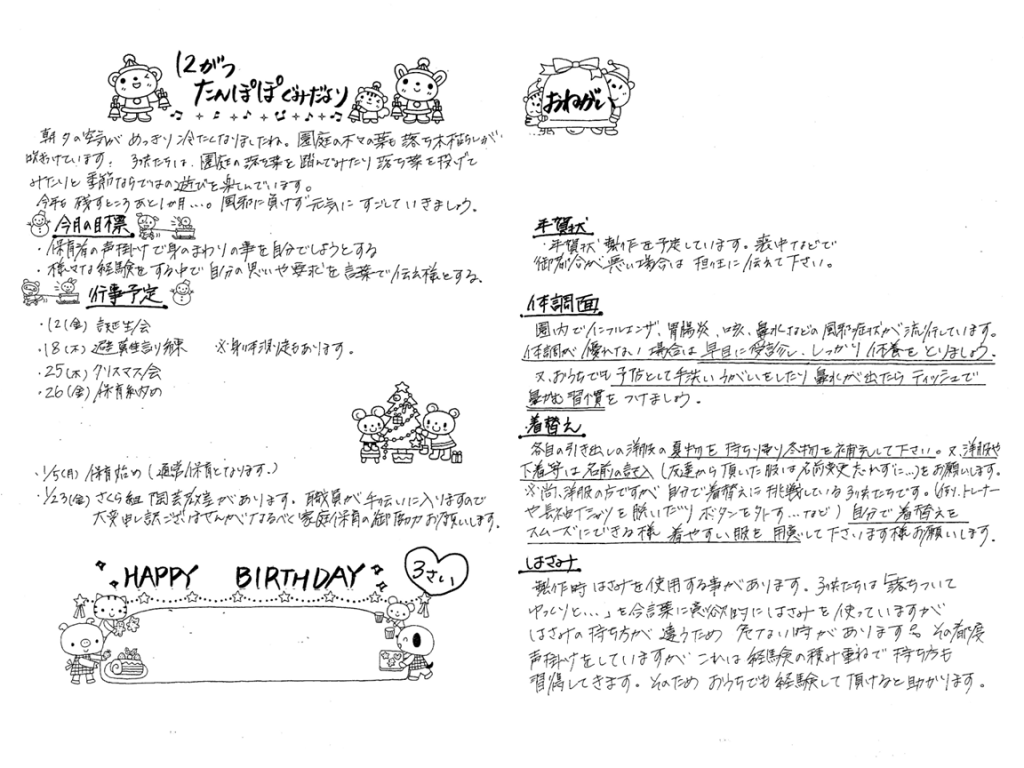 12がつ
たんぽぽぐみだより
朝夕の空気が めっきり冷たくなりましたね。園庭の木々の葉も落ち木枯らしが
吹きぬけています。 子供たちは、園庭の落ち葉を踏んでみたり落ち葉を投げて
みたりと季節ならではの遊びを楽しんでいます。
今年も残すところあと1か月…。風邪に負けず元気にすごしていきましょう。
今月の目標
・保育者の声掛けで身のまわりの事を自分でしようとする
・様々な経験をする中で自分の思いや要求を言葉で伝え様とする。
行事予定
・12(金) 誕生会
・18(木) 避難訓練 ※身体測定もあります。
・25(木) クリスマス会
・26(金) 保育納め
・1/5(月) 保育始め(通常保育となります。)
・1/23(金) さくら組 陶芸教室があります。職員が手伝いに入りますので
大変申し訳ございませんがなるべく家庭保育の御協力お願いします。
HAPPY BIRTHDAY
3さい
おねがい
年賀状
・年賀状製作を予定しています。喪中などで
御都合が悪い場合は担任に伝えて下さい。
体調面
園内でインフルエンザ、胃腸炎、咳、鼻水などの風邪症状が流行しています。
体調が優れない場合は早目に受診し、しっかり休養をとりましょう。
又、おうちでも予防として手洗いうがいをしたり鼻水が出たらティッシュで
鼻かむ習慣をつけましょう。
着替え
各自の引き出しの洋服の夏物を持ち帰り冬物を補充して下さい。又、洋服や
下着等は名前の記入(友達から頂いた服は名前変更忘れずに…)をお願いします。
※尚、洋服の方ですが自分で着替えに挑戦している子供たちです。(例、トレーナー
や長袖Tシャツを脱いだりボタンを外す…など)自分で着替えを
スムーズにできる様 着やすい服を用意して下さいます様お願いします。
はさみ
製作時はさみを使用する事があります。子供たちは「落ちついて
ゆっくりと…」を合言葉に意欲的にはさみを使っていますが
はさみの持ち方が違うため危ない時があります。その都度
声掛けをしていますが これは経験の積み重ねで持ち方も
習得してきます。そのためおうちでも経験して頂けると助かります。